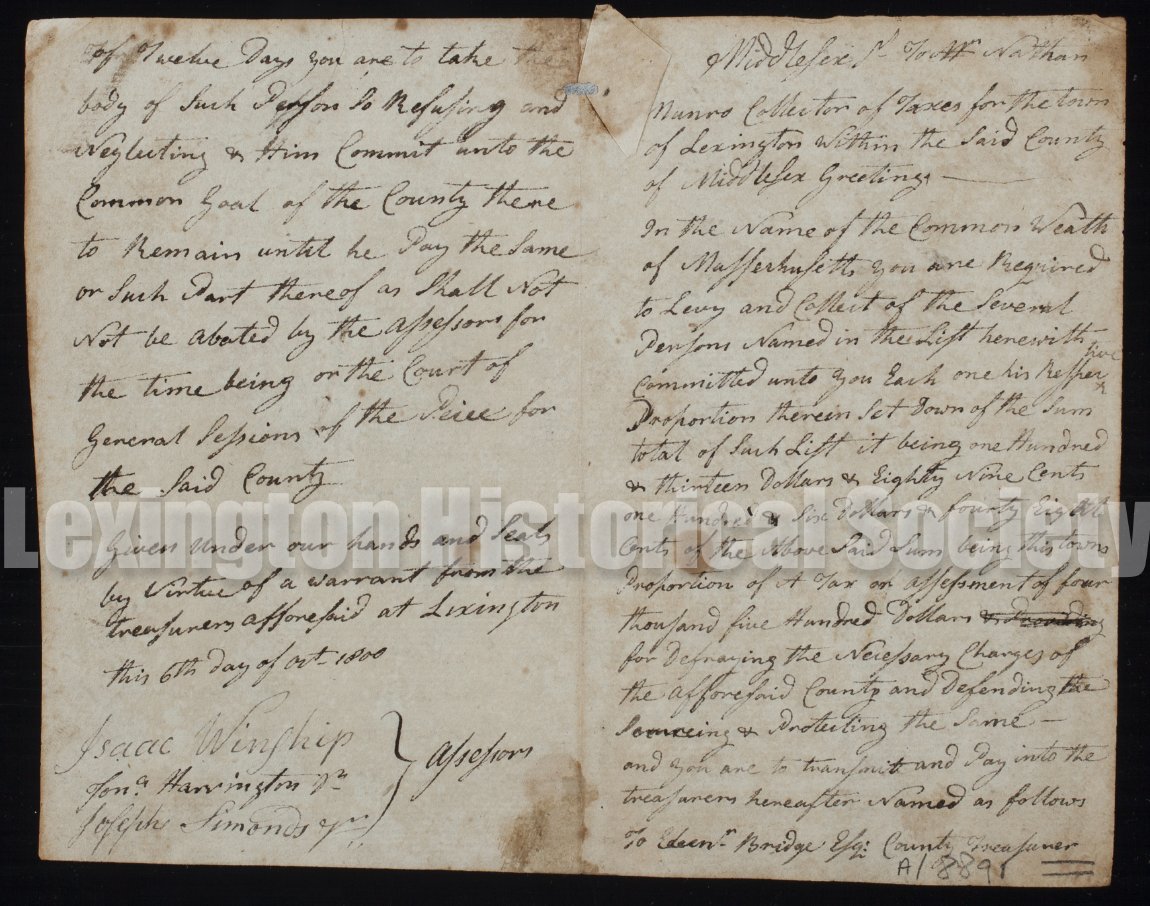 of Twelve Days you are to take the
body of Such Person So Refusing and
Neglecting & Him Commit unto the
Common Goal of the County there
to Remain until he Pay the Same
or Such Part thereof as Shall Not
Not be abated by the Assessors for
the time being or the Court of
General Sessions of the Peiee for
the Said County
Given under our hands and Seals
by Virtue of a warrant from the
treasurers afforesaid at Lexington
this 6th Day of Oct 1800
Isaac Winship
Jona Harrington Jr
Joseph Simonds
Assessors
Middlesex To Nathan
Munro Collector of Taxes for the town
of Lexington Within the Said County
of Middlesex Greeting
In the Name of the Common Wealth
of Massechusetts you are Required
to Levy and Collect of the Several
Persons Named in the List herewith
Committed unto you Each one his Respective
Proportion therein Set Down of the Sum
total of Such List it being one Hundred
& thirteen Dollars & Eighty Nine Cents
one Hundred & Six Dollars & fourty Eight
Cents of the Above Said Sum being this towns
Proportion of A Tax or assessment of four
thousand five Hundred Dollars
for Defraying the Necessary Charges of
the afforesaid County and Defending the
& Protecting the Same
and you are to transmit and Pay into the
treasurers hereafter Named as follows
To Ebenr Bridge Esqr County Treasurer
A/ 889
Lexington Historical Society